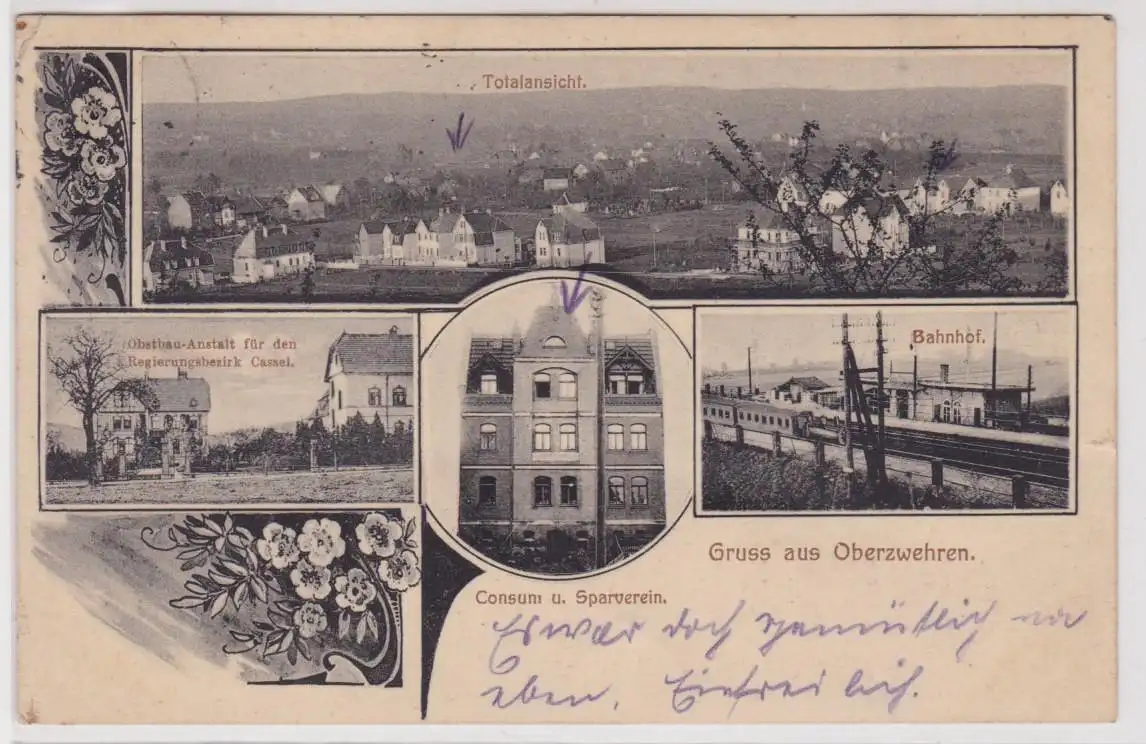 Totalansicht.
Obstbau-Anstalt für den
Regierungsbezirk Cassel.
Bahnhof.
Gruss aus Oberzwehren.
Consum u. Sparverein.
Es war doch gemütlich na
eben.